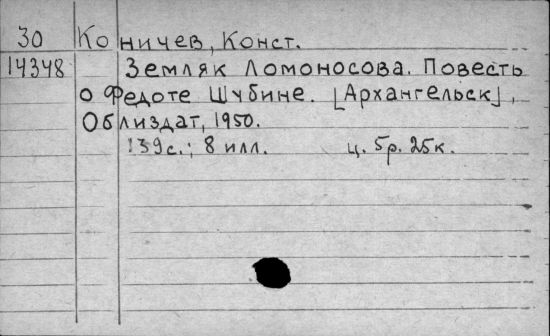 30 Коничев, Конст.
14348 Земляк Ломоносова. Повесть
о Федоте Шубине. [Архангельск],
Облиздат, 1950.
139с.; 8 илл. ц. 5р. 25к.